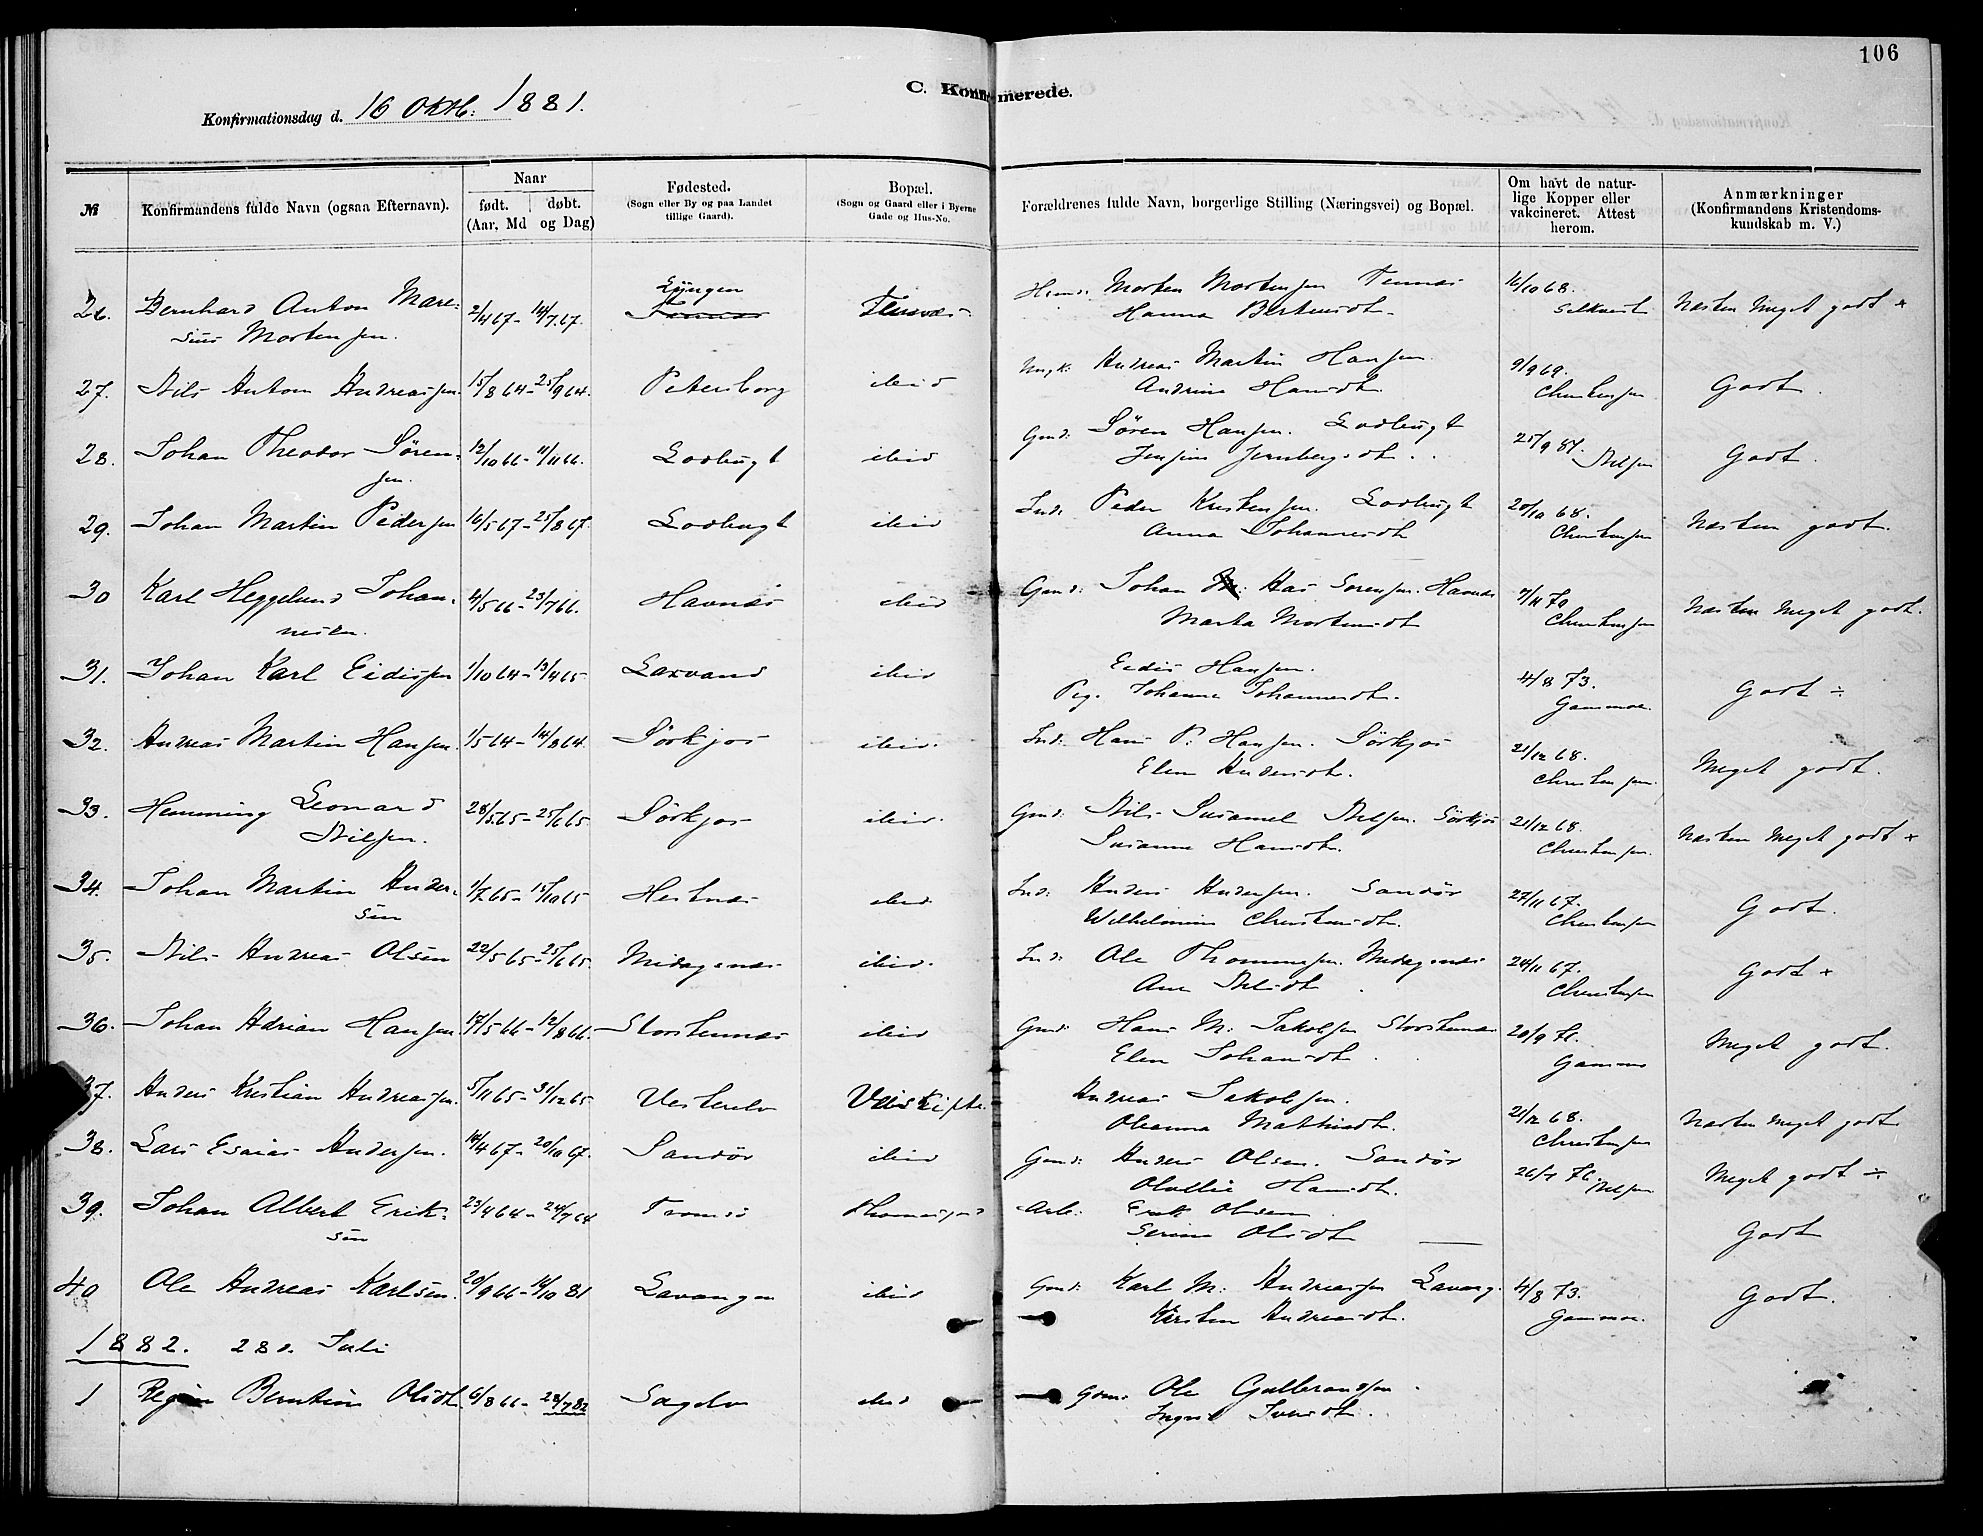 106
C. Konfirmerede.
Konfirmationsdag d. 16 Oktb: 1881.
№
Konfirmandens fulde Navn (ogsaa Efternavn).
Naar
født. døbt.
(Aar, Md og Dag)
Fødested.
(Sogn eller By og paa Landet
tillige Gaard).
Bopæl.
(Sogn og Gaard eller i Byerne
Gade og Hus-No.
Forældrenes fulde Navn, borgerlige Stilling (Næringsvei) og Bopæl.
Om havt de natur-
lige Kopper eller
vakcineret. Attest
herom.
Anmærkninger
(Konfirmandens Kristendoms-
kundskab m. V.)
26. Bernhard Anton Mare- 2/4 67 - 14/7 67. Lyngen Morten Mortensen Tennæs 16/10 68. Næsten Meget godt +
sius Mortensen. Hanna
27. Nils Anton Andreassen 15/8 64 - 25/9 64. Petersborg ibid Andreas Martin Hansen 9/9 69. Godt.
Andrine Hansdt. Christensen
28. Johan Theodor Søren- 12/10 66 - 11/11 66. Lodbugt ibid Gmd: Søren Hansen. Lodbugt Nilsen Godt.
sen.
29. Johan Martin Pedersen 16/5 67 - 25/8 67. Lodbugt ibid Ind: Peder Kristensen. Lodbugt 20/10 68. Næsten godt.
Anna Johannesdt Christensen
30 Karl Heggelund Johan- 4/5 66 - 23/7 66. Havnæs ibid Gmd: Johan Havnæs 7/11 70 Næsten Meget godt.
nesen. Marta Mortensdt Christensen
31. Johan Karl Eidissen 1/10 64 - 13/4 65 Laxvand ibid Eidis Hansen. 4/8 73. Godt ÷
Pig. Johanna Johannesdt. Gammoe.
32. Andreas Martin Hansen. 1/5 64 - 14/8 64. Sørkjos ibid. Ind: Hans P. Hansen. Sørkjos 21/12 68. Meget godt.
Elen Andersdt. Christensen.
33. Hemming Leonard 28/5 65 - 25/6 65 Sørkjos ibid. Gmd: Nils Nilsen. Sørkjos 21/12 68. Næsten Meget godt +
Nilsen. Susanna Hansdt. Christensen.
34. Johan Martin Ander- 1/7 65 - 15/10 65 Hestnæs ibid. Ind: Anders Andersen. Sandør 27/11 67. Godt.
sen Wilhelmine Christensen
35. Nils Andreas Olsen 22/5 65 - 25/6 65. Midagsnæs ibid. Ind: Ole Thommesen. Midagsnæs 24/11 67. Godt +
Ane Nilsdt Christensen
36. Johan Adrian Hansen 17/5 66 - 12/8 66. Storstennæs ibid Gmd: Hans M. Jakobsen Storstennæs 20/9 71. Meget godt.
Elen Johansdt
37. Anders Kristian Andreassen. 5/11 65 - 31/12 65 Vesterelv Andreas Jakobsen. 21/12 68. Næsten Meget godt
Oleanna Mathisdt. Christensen
38. Lars Esaias Andersen. 14/4 67 - 20/10 67. Sandør ibid Gmd: Anders Olsen. Sandør Nilsen Meget godt ÷
Hansdt.
39. Johan Albert Erik- 23/4 64 - 24/7 64 Tromsø Arb: Erik Olsen Godt
sen Serine Olsdt
40 Ole Andreas Karlsen. 20/9 66 - 14/10 81 Lavangen ibid Gmd: Karl M. Andreassen Lavang. 4/8 73. Godt.
Kirsten Andreasdt. Gammoe.
1882. 28d. Juli
1 Regine Berntine Olsdt 6/8 66 - 28/7 82 Sagelv ibid Gmd: Ole Gulbrandsen